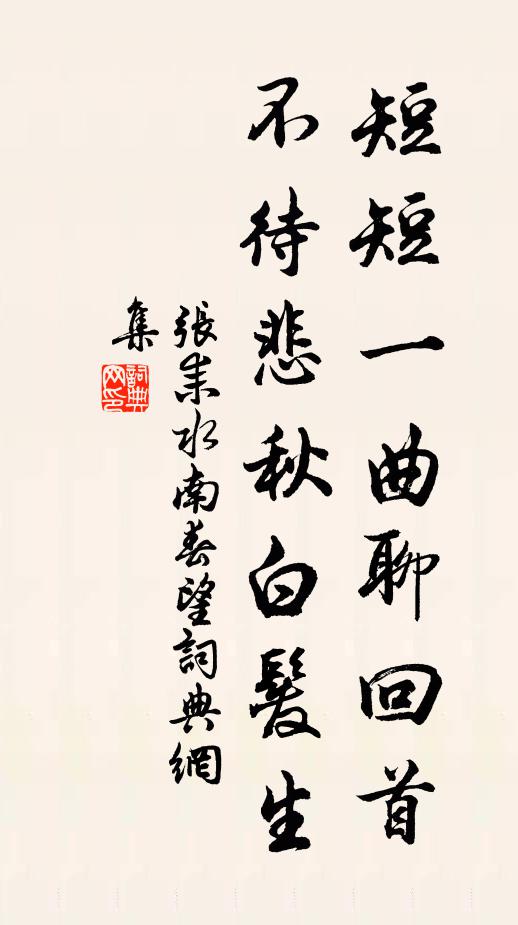 短短一曲聊回首
不待悲秋白髮生
張耒水南春望詞典網
集
詞典網印